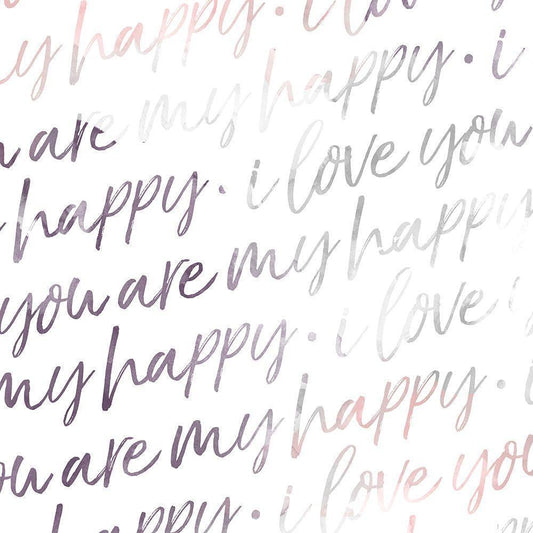 my happy • i love
are my happy • i
happy • i love you
you are my happy
my happy • i love
you are my happy • i
you are my happy
happy • i love you
happy • i love you